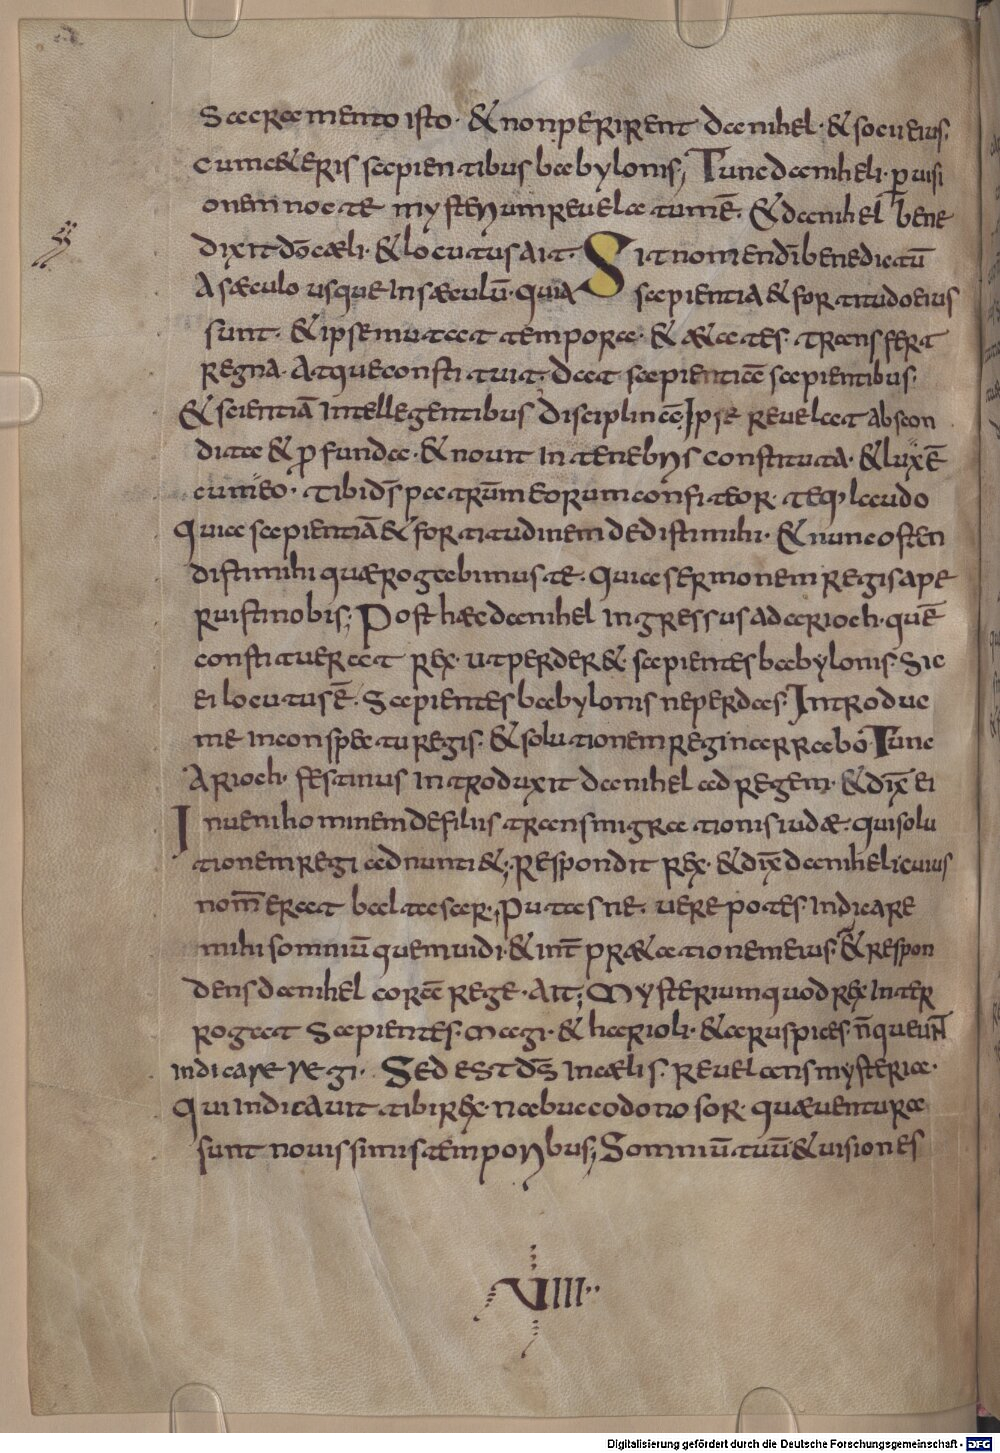 sacramento isto· & non perirent danihel· & socii eius,
cum c&eris sapientibus babylonis; Tunc daniheli· ꝑ uisi
onem nocte mysterium reuelatum ē· & danihel bene
dixit dō cæli· & locutus ait· Sit nomen dn̄i benedictū
A sæculo usque in sæculū· quia sapientia & fortitudo eius
sunt· & ipse mutat tempora· & æ&ates· transfert
regna· Atque constituit· dat sapientiā sapientibus·
& scientiā intellegentibus disciplinā Ipse reuelat abscon
dita & ꝓfunda· & nouit in tenebris constituta· & lux ē
cum eo· tibi dš patrūm eorum confiteor· teq; laudo
Quia sapientiā & fortitudinem dedisti mihi· & nunc osten
disti mihi quæ rogabimus te· quia sermonem regis ape
ruisti nobis; Post hæc danihel ingressus ad arioch· quē
constituerat rex· ut perder& sapientes babylonis· Sic
ei locutus ē· Sapientes babylonis ne perdas· Introduc
me in conspectu regis· & solutionem regi narrabo· Tunc
Arioch· festinus introduxit danihel ad regem· & dix̄ ei
Inueni hominem de filiis transmigrationis iudæ· qui solu
tionem regi adnunti&; Respondit rex· & dix̄ daniheli cuius
nom̄ erat baltasar; Putasne uere potes indicare
mihi somniū quem uidi· & int̄ præ&ationem eius· & respon
dens danihel corā rege· ait; Mysterium quod rex inter
rogat Sapientes· magi· & harioli· & aruspices· n̄ queunt
indicare regi· Sed est dš in cælis· reuelans mysteria·
Qui indicauit tibi rex· nabucodonosor· quæ uentura
sunt nouissimis temporibus; Somniū tuū & uisiones
VIIII··
Digitalisierung gefördert durch die Deutsche Forschungsgemeinschaft - DFG